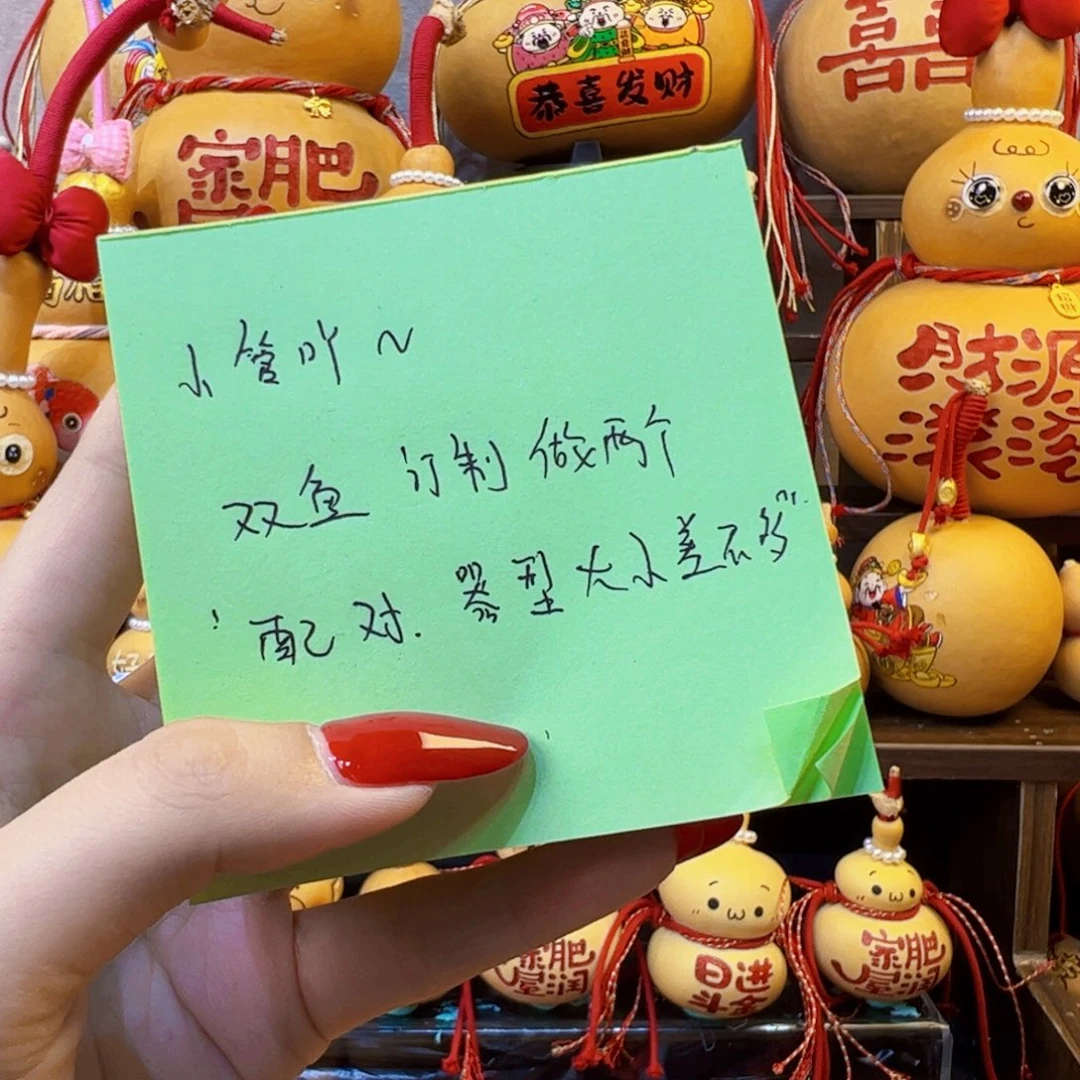 恭喜发财
囍
家肥
财源
滚滚
小管吖~
双鱼 订制 做两个
配对. 器型大小差不多
家肥
屋润
日进
斗金
家肥
屋润